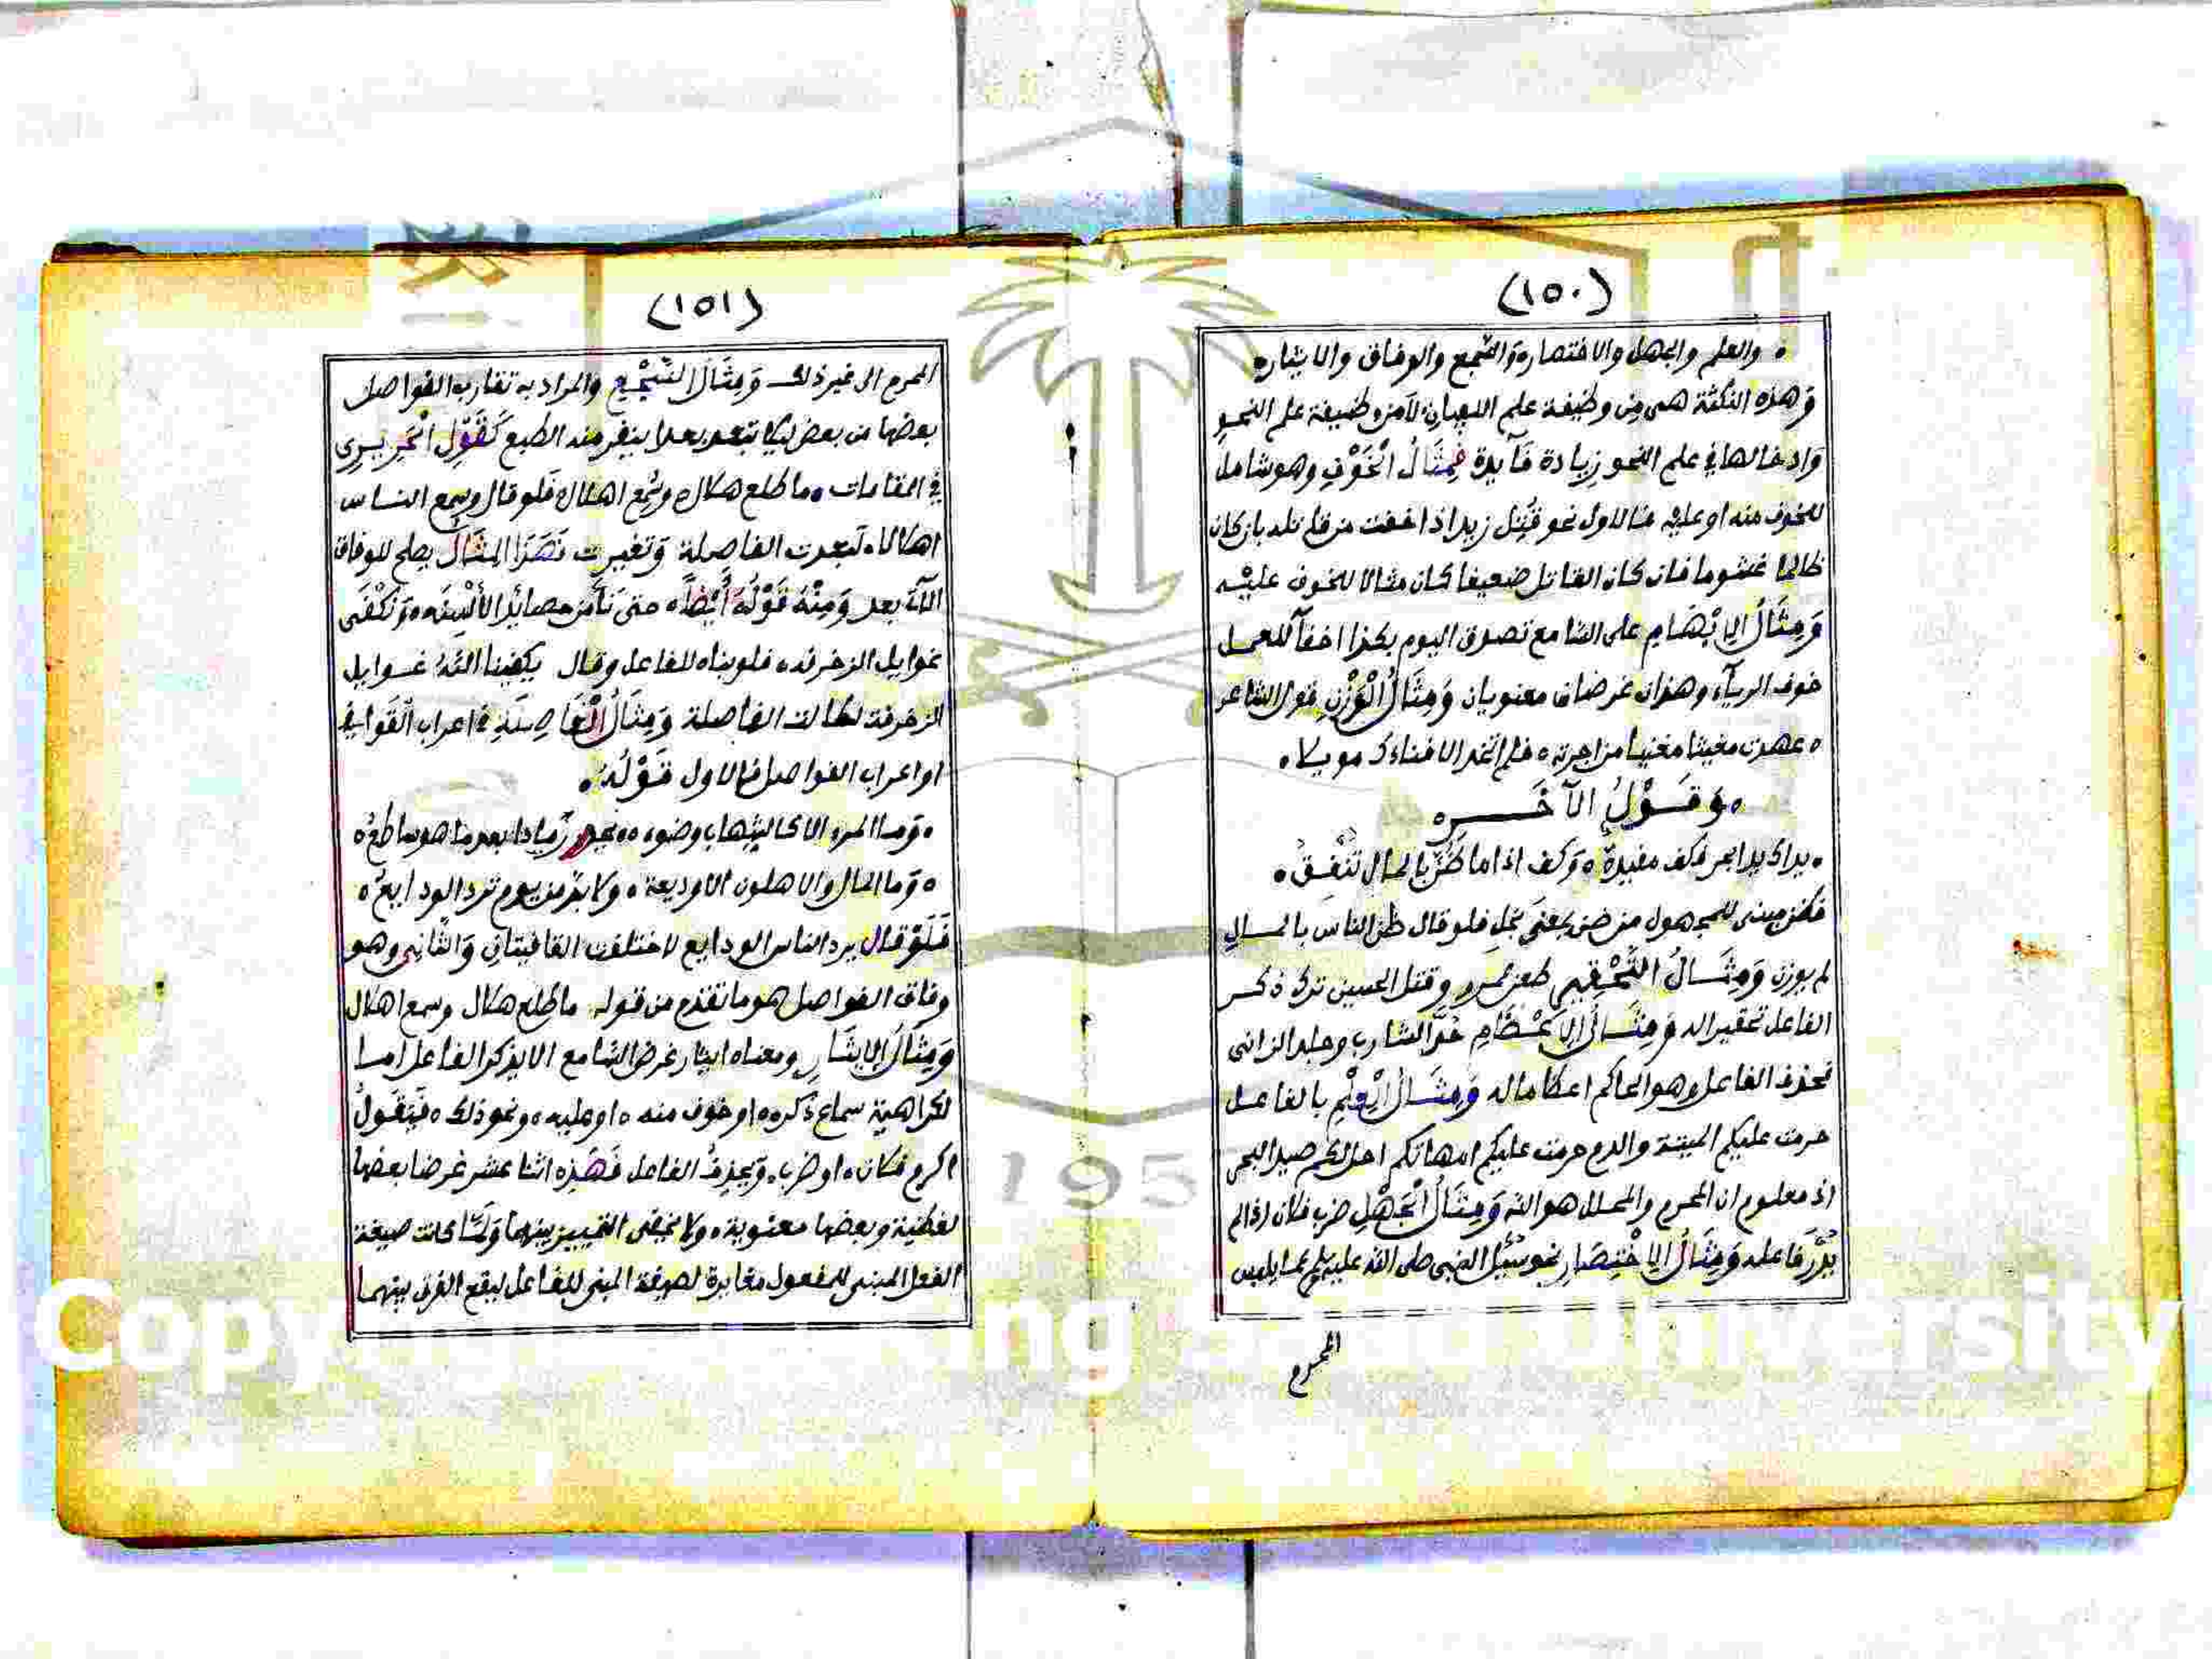 (١٥٠)
• والعلم والجهل والاختصار والسجع والوفاق والايثار
وهذه النكتة هى من وظيفة علم البيان لا من وظيفة علم النحو
وادخالها في علم النحو زيادة فآيدة فمثال الخوف وهو شامل
للخوف منه او عليه مثالاول نحو قتل زيد اذا خفت من قاتله بان كان
ظالما غشوما فان كان القاتل ضعيفا كان مثالا للخوف عليه
ومثال الابهام على السامع تصدق اليوم بكذا اخفآ للعمل
خوف الريآء وهذان غرضان معنويان ومثال الوزن قول الشاعر
• عهدت مغيثا مغنيا من اجرته • فلم اتخذ الا فناءك مويلا •
• وقول الآخر •
• يداك يدا بحر فكف مفيدة • وكف اذا ما ضن بالمال تنفق •
فضن مبنى للمجهول من ضن بمعنى بخل فلو قال ظن الناس بالمال
لم يوزن ومثال التحقير طعن عمر وقتل الحسين ترك ذكر
الفاعل تحقير اله ومثال الاعظام حد الشارب وجلد الزانى
فحذف الفاعل وهو الحاكم اعظاما له ومثال العلم بالفاعل
حرمت عليكم الميتة والدم حرمت عليكم امهاتكم احل لكم صيد البحر
اذ معلوم ان المحرم والمحلل هو الله ومثال الجهل ضرب فلان اذا لم
يدر فاعله ومثال الاختصار نحو سئل النبى صلى الله عليه وسلم عما يلبس
المحرم
(١٥١)
المحرم الى غير ذلك ومثال السجع والمراد به تقارب الفواصل
بعضها من بعض ليلا تبعد بعدا ينفر منه الطبع كقول الحريرى
في المقامات • ما طلع هلال وسمع اهلال فلو قال وسمع الناس
اهلالا • لبعدت الفاصلة وتغيرت المثال يصلح للوفاق
الآتى بعد ومنه قوله ايضا • حتى نأمن حصائد الألسنه • ونكفى
غوايل الزخرفه • فلو بناه للفاعل وقال يكفينا الله غوايل
الزخرفة لطالت الفاصلة ومثال الفاصلة في اعراب القوافي
او اعراب الفواصل فالاول قوله •
• وما المرء الا كالشهاب وضوءه • يحور رمادا بعد ما هو ساطع •
• وما المال والاهلون الا وديعة • ولا بد من يوم ترد الودايع •
فلو قال يرد الناس الودايع لاختلفت القافيتان والثانى وهو
وفاق الفواصل هو ما تقدم من قوله ما طلع هلال وسمع اهلال
ومثال الايثار ومعناه ايثار غرض السامع الا يذكر الفاعل اما
لكراهية سماع ذكره • او خوف منه • او عليه • ونحو ذلك • فيقول
اكرم فلان • او ضرب • ويحذف الفاعل فهذه اثنا عشر غرضا بعضها
لفظية وبعضها معنوية • ولا يخفى التمييز بينهما ولما كانت صيغة
الفعل المبنى للمفعول مغايرة لصيغة المبنى للفاعل ليقع الفرق بينهما
Copy ng University
195